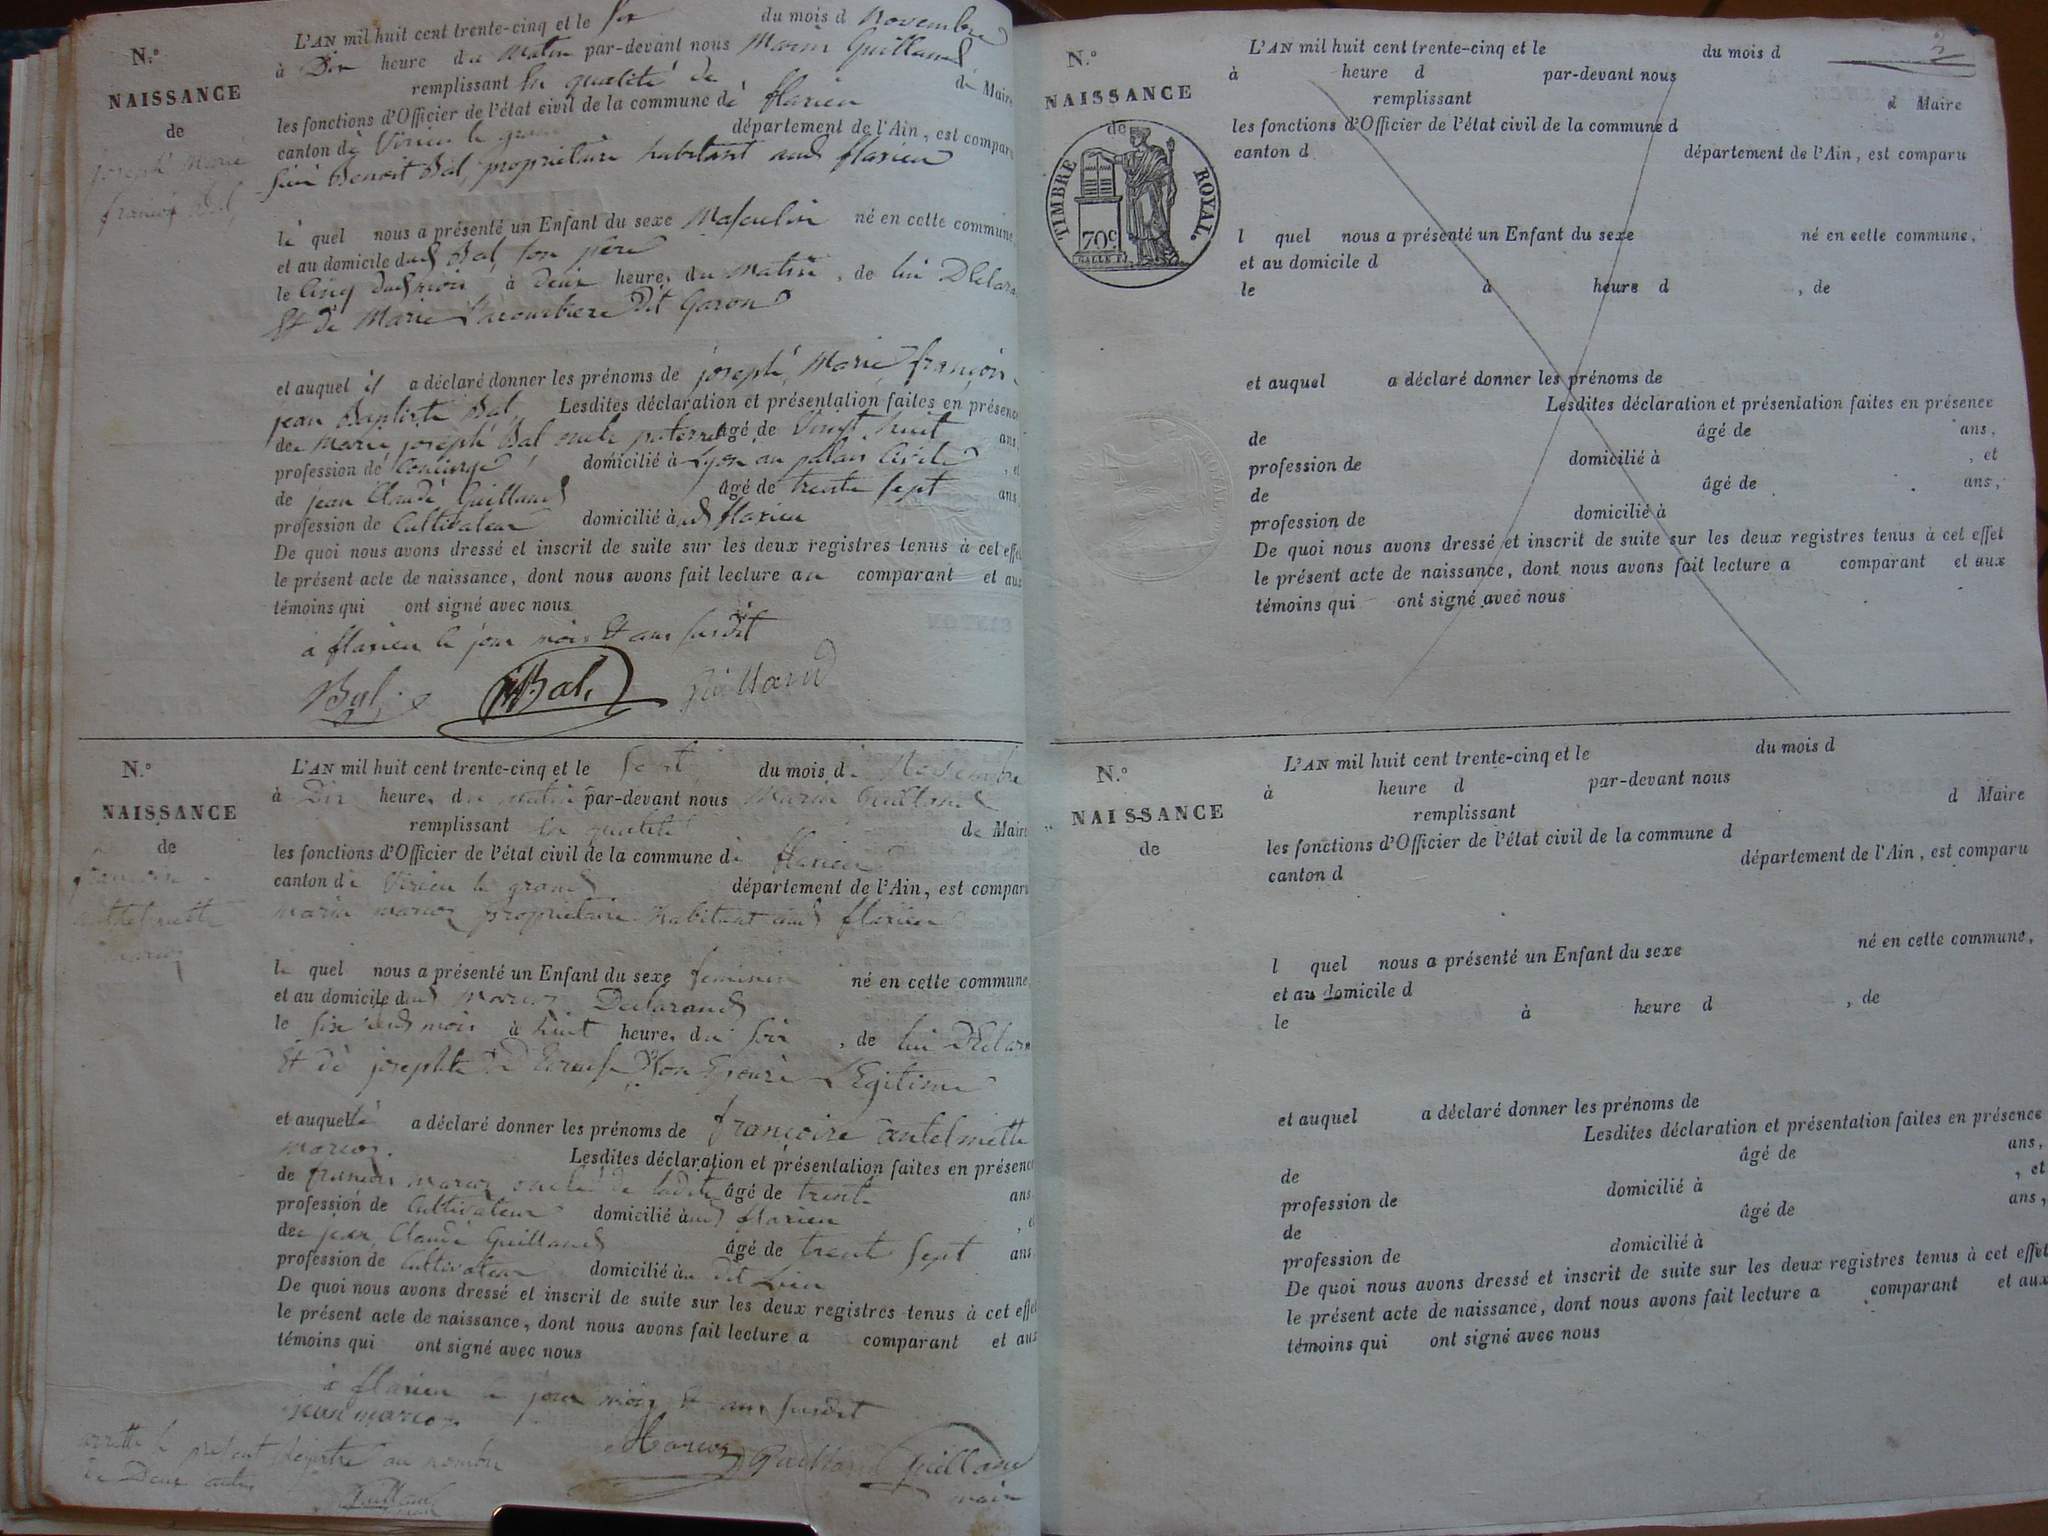 N.o
NAISSANCE
de
joseph Marie
françois Bal
L'AN mil huit cent trente-cinq et le six du mois d novembre
à Dix heure du Matin par-devant nous Marin Guilland
remplissant la qualité de de Maire
les fonctions d'Officier de l'état civil de la commune de flaxieu
canton de Virieu le grand département de l'Ain, est comparu
Benoit Bal, propriétaire habitant aud flaxieu
le quel nous a présenté un Enfant du sexe Masculin né en cette commune,
et au domicile dud Bal son père
le cinq dud mois à deux heure, du matin, de lui Déclara
Et de Marie Dit Garon
et auquel il a déclaré donner les prénoms de joseph, Marie françois
jean Baptiste Bal, Lesdites déclaration et présentation faites en présence
de Marie joseph Bal oncle paternel âgé de Vingt huit ans,
profession de Concierge domicilié à Lyon au palais Civile, et
de jean Claude Guilland âgé de trente sept ans,
profession de Cultivateur domicilié à aud flaxieu
De quoi nous avons dressé et inscrit de suite sur les deux registres tenus à cet effet
le présent acte de naissance, dont nous avons fait lecture au comparant et aux
témoins qui ont signé avec nous
à flaxieu le jour mois et ans susdit
Bal Bal Guilland
N.o
NAISSANCE
de
françoise
anthelmette
marcoz
L'AN mil huit cent trente-cinq et le sept du mois de Novembre
à Dix heure, du matin par-devant nous Marin Guilland
remplissant la qualité de Maire
les fonctions d'Officier de l'état civil de la commune de flaxieu
canton de Virieu le grand département de l'Ain, est comparu
marin marcoz propriétaire habitant aud flaxieu
le quel nous a présenté un Enfant du sexe feminin né en cette commune
et au domicile dud Marcoz Déclarand
le six dud mois à huit heure, du soir, de lui Déclara
Et de josephte son Epouse Légitime
et auquel a déclaré donner les prénoms de françoise antelmette
marcoz. Lesdites déclaration et présentation faites en présence
de françois marcoz oncle de ladite âgé de trente ans
profession de Cultivateur domicilié aud flaxieu, et
de jean Claude Guilland âgé de trente sept ans
profession de Cultivateur domicilié au dit Lieu
De quoi nous avons dressé et inscrit de suite sur les deux registres tenus à cet effet
le présent acte de naissance, dont nous avons fait lecture a comparant et aux
témoins qui ont signé avec nous
à flaxieu le jour mois et ans susdit
jean marcoz
Marcoz Guilland Guilland
maire
arretté le présent Régistre au nombre
de Deux actes
Guilland
2
N.o
NAISSANCE
de
TIMBRE ROYAL.
70c
L'AN mil huit cent trente-cinq et le du mois d
à heure d par-devant nous
remplissant d Maire
les fonctions d'Officier de l'état civil de la commune d
canton d département de l'Ain, est comparu
l quel nous a présenté un Enfant du sexe né en cette commune,
et au domicile d
le à heure d , de
et auquel a déclaré donner les prénoms de
Lesdites déclaration et présentation faites en présence
de âgé de ans,
profession de domicilié à , et
de âgé de ans,
profession de domicilié à
De quoi nous avons dressé et inscrit de suite sur les deux registres tenus à cet effet
le présent acte de naissance, dont nous avons fait lecture a comparant et aux
témoins qui ont signé avec nous
N.o
NAISSANCE
de
L'AN mil huit cent trente-cinq et le du mois d
à heure d par-devant nous
remplissant d Maire
les fonctions d'Officier de l'état civil de la commune d
canton d département de l'Ain, est comparu
l quel nous a présenté un Enfant du sexe né en cette commune,
et au domicile d
le à heure d , de
et auquel a déclaré donner les prénoms de
Lesdites déclaration et présentation faites en présence
de âgé de ans,
profession de domicilié à , et
de âgé de ans,
profession de domicilié à
De quoi nous avons dressé et inscrit de suite sur les deux registres tenus à cet effet
le présent acte de naissance, dont nous avons fait lecture a comparant et aux
témoins qui ont signé avec nous